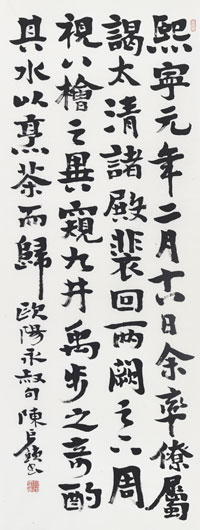 熙寧元年二月十六日余率僚屬
謁太清諸殿裴回兩闕之下周
視八檜之異窺九井禹步之奇酌
其水以烹茶而歸
歐陽永叔句陳巨鎖書